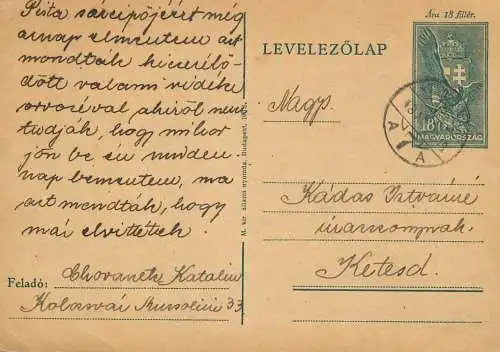 Pista sárcipőjéért még
aznap elmentem azt
mondták kicserélő-
dött valami vidéki
orvoséval akiről nem
tudják, hogy mikor
jön be, én minden-
nap bementem, ma
azt mondták, hogy
már elvitték.
Feladó: Chovaneth Katalin
Kolozsvár Mussolini 33
M. kir. állami nyomda, Budapest.
Ára 18 fillér.
LEVELEZŐLAP
18
MAGYARORSZÁG
Nagys.
Kádas Istvánné
úrasszonynak.
Ketesd.